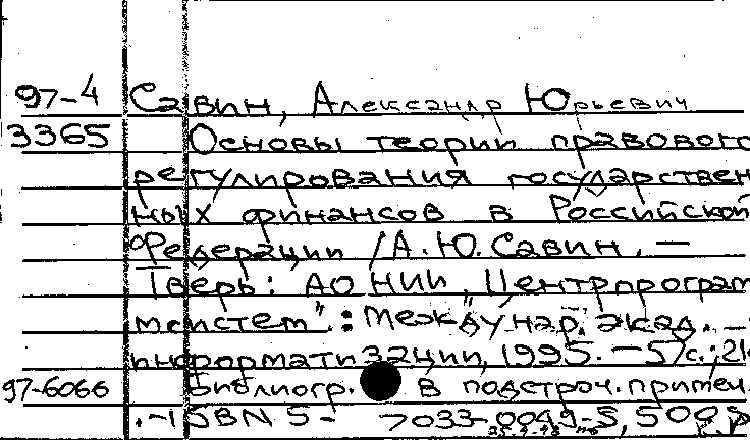 97-4 Савин, Александр Юрьевич
3365 Основы теории правового
регулирования государствен
ных финансов в Российской
Федерации /А.Ю.Савин. —
Тверь: АО НИИ „Центрпрограм
мсистем": Междунар. акад.
информатизации, 1995. — 57с.; 21
97-6066 Библиогр. в подстроч. примеч.
.-ISBN 5- 7033-0049-5, 500